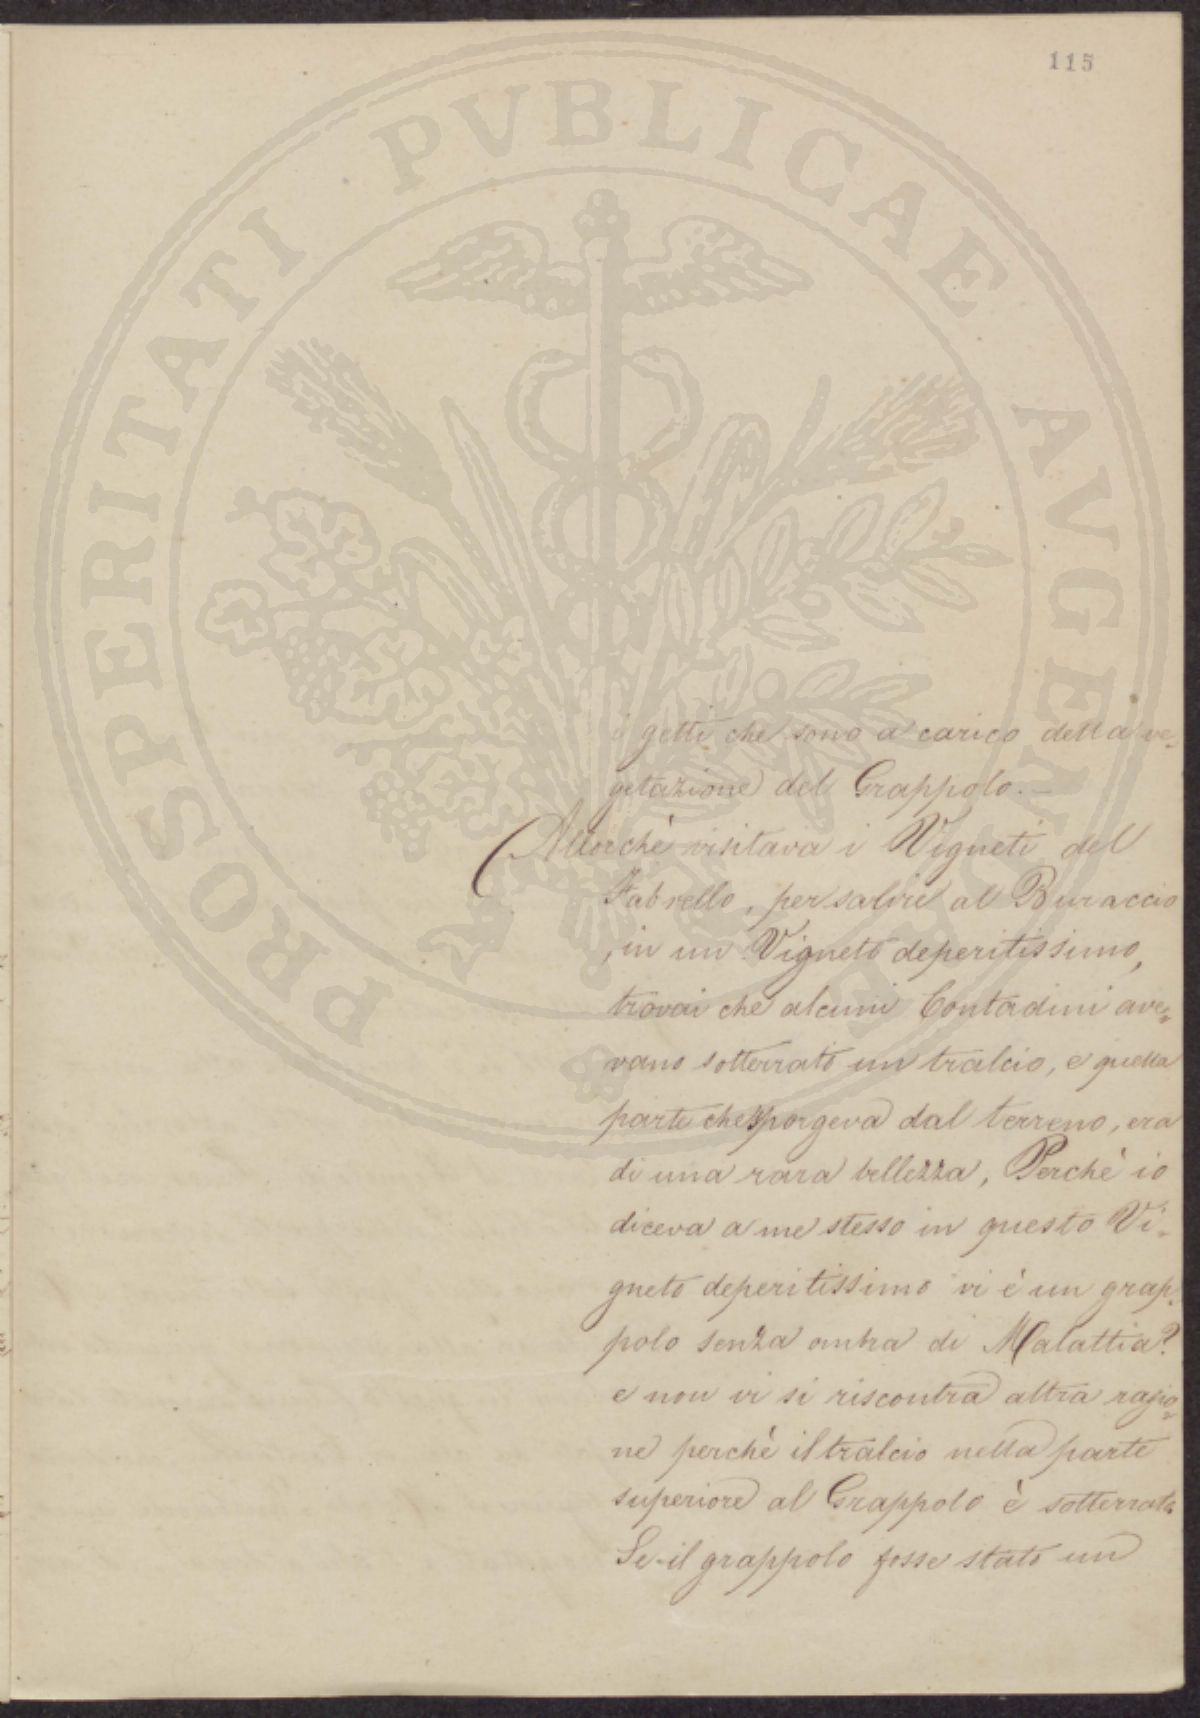 115
PROSPERITATI PVBLICAE AVGENDAE
i getti che sono a carico della ve-
getazione del Grappolo. —
Allorchè visitava i Vigneti del
Fabrello, per salire al Buraccio
, in un Vigneto deperitissimo,
trovai che alcuni Contadini ave=
vano sotterrato un tralcio, e quella
parte che sporgeva dal terreno, era
di una rara bellezza, Perchè io
diceva a me stesso in questo Vi=
gneto deperitissimo vi è un grap-
polo senza ombra di Malattia?
e non vi si riscontra altra ragio=
ne perchè il tralcio nella parte
superiore al Grappolo è sotterrato
Se il grappolo fosse stato un